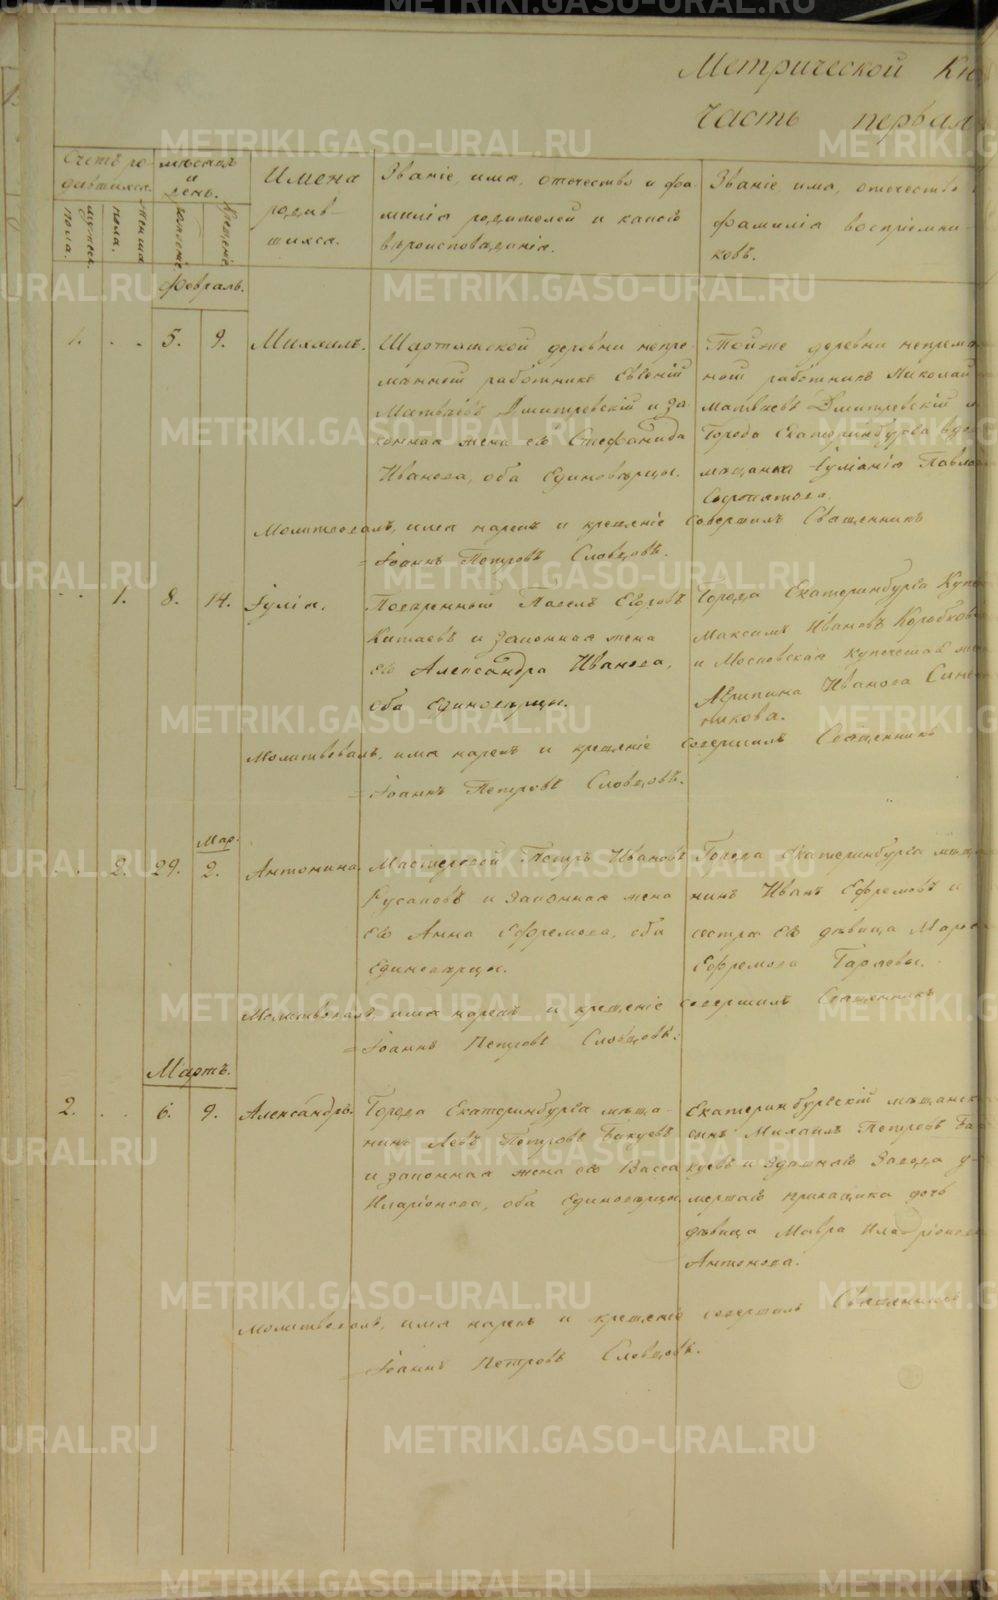 Метрической Кн
Часть первая
Счетъ ро-
дившихся.
мужеска
пола.
женска
пола.
мѣсяцъ
и
день.
рожденіе
крещеніе
Имена
родив-
шихся.
Званіе, имя, отечество и фа-
милія родителей и какого
вѣроисповѣданія.
Званіе имя, отечество
фамилія воспріемни-
ковъ.
Февраль.
1. . . 5. 9. Михаилъ.
Шарташской деревни непре-
мѣнный работникъ Евгеній
Матвѣевъ Дмитревскій и за-
конная жена его Стефанида
Иванова, оба Единовѣрцы.
Тойже деревни непремѣ
ной работникъ Николай
Матвѣевъ Дмитревскій и
Города Екатеринбурга вдо
мѣщанка Іуліанія Павло
Молитвовалъ, имя нарекъ и крещеніе совершилъ Священникъ
Іоаннъ Петровъ Словцовъ.
. . 1. 8. 14. Іулія.
Повѣренный Павелъ Егоровъ
Китаевъ и законная жена
его Александра Иванова,
оба единовѣрцы.
Города Екатеринбурга Купе
Максимъ Ивановъ Коробков
и Московская купеческая же
Агрипина Иванова Сини
никова.
Молитвовалъ, имя нарекъ и крещеніе совершилъ Священникъ
Іоаннъ Петровъ Словцовъ.
Мар.
. . 2. 29. 2. Антонина.
Мастеровой Петръ Ивановъ
Русановъ и законная жена
его Анна Ефремова, оба
единовѣрцы.
Города Екатеринбурга мѣща
нинъ Иванъ Ефремовъ и
сестра его дѣвица Марѳа
Ефремова Гаряевы.
Молитвовалъ, имя нарекъ и крещеніе совершилъ Священникъ
Іоаннъ Петровъ Словцовъ.
Мартъ.
2. . . 6. 9. Александръ.
Города Екатеринбурга мѣща-
нинъ Левъ Петровъ Бакуевъ
и законная жена его Васса
Иларіонова, оба Единовѣрцы.
Екатеринбургскій мѣщанск
сынъ Михаилъ Петровъ Ба
куевъ и здѣшняго Завода у-
мершаго прикащика дочь
дѣвица Мавра Иларіонова
Антонова.
Молитвовалъ, имя нарекъ и крещеніе совершилъ Священникъ
Іоаннъ Петровъ Словцовъ.
METRIKI.GASO-URAL.RU